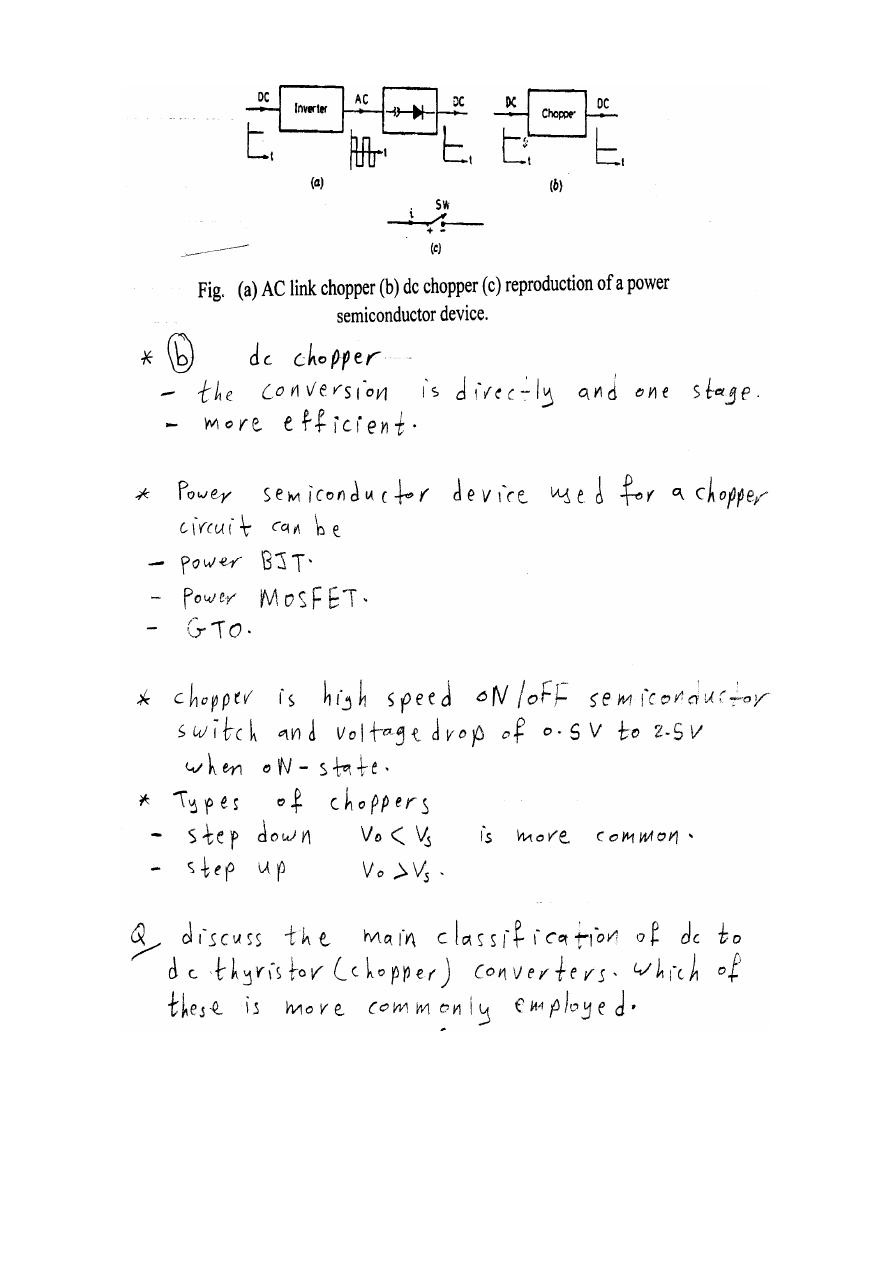 DC Inverter AC DC DC Chopper DC
t t t t t
(a) (b)
i SW
+ -
(c)
Fig. (a) AC link chopper (b) dc chopper (c) reproduction of a power
semiconductor device.
* (b) dc chopper
- the conversion is directly and one stage.
- more efficient.
* Power semiconductor device used for a chopper
circuit can be
- power BJT.
- Power MOSFET.
- GTO.
* chopper is high speed ON/OFF semiconductor
switch and voltage drop of 0.5V to 2.5V
when ON-state.
* Types of choppers
- step down Vo < Vs is more common.
- step up Vo > Vs.
Q discuss the main classification of dc to
dc thyristor (chopper) converters. Which of
these is more commonly employed.